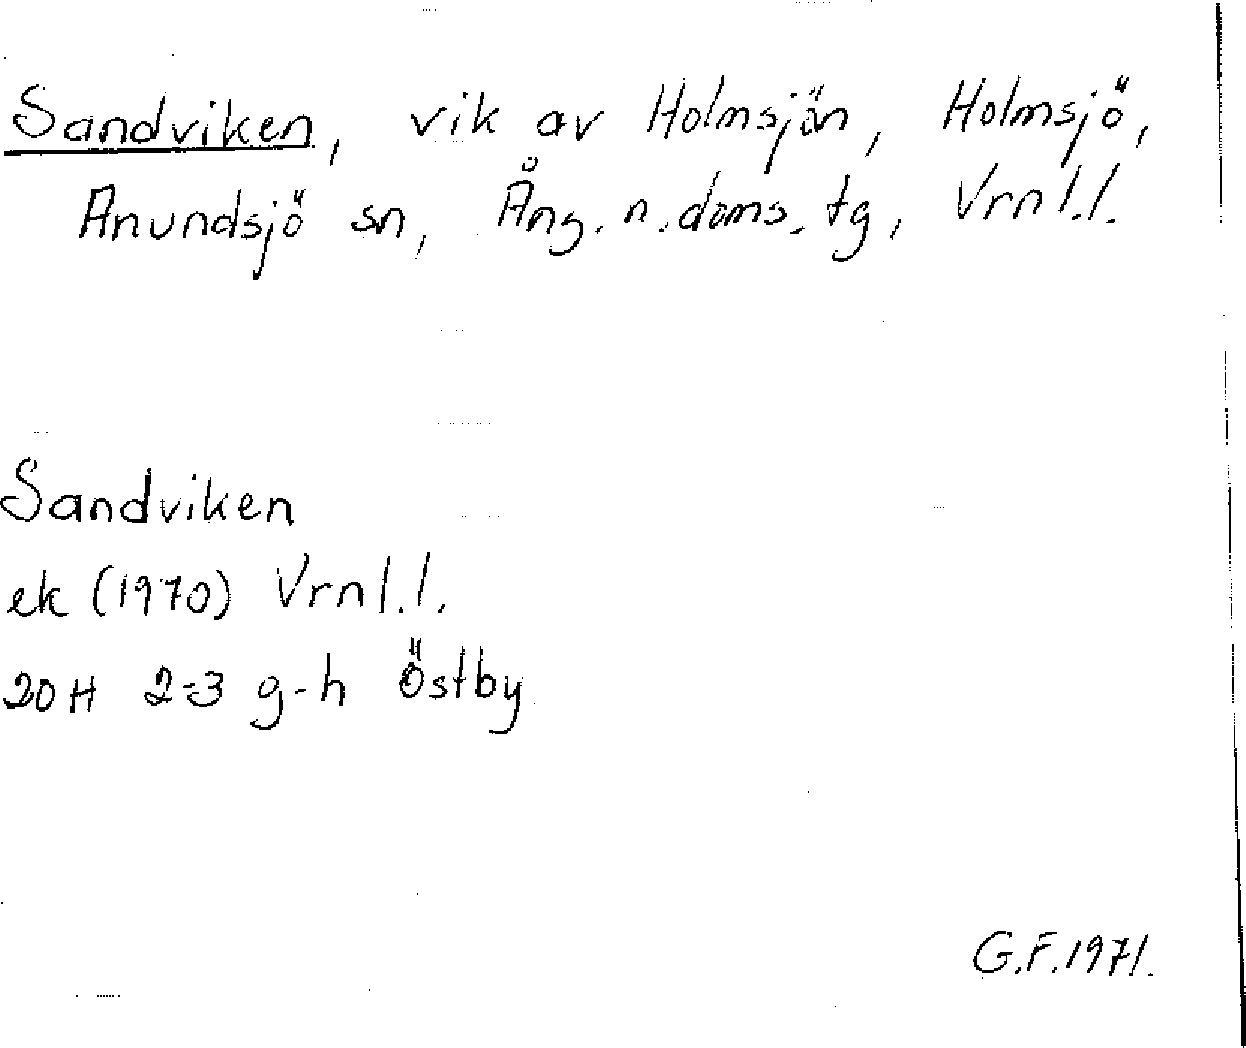 Sandviken, vik av Holmsjön, Holmsjö,
Anundsjö sn, Ång. n. doms. tg, Vrnl.l.
Sandviken
ek (1970) Vrnl.l.
20H 2-3 g-h Östby
G.F. 1971.